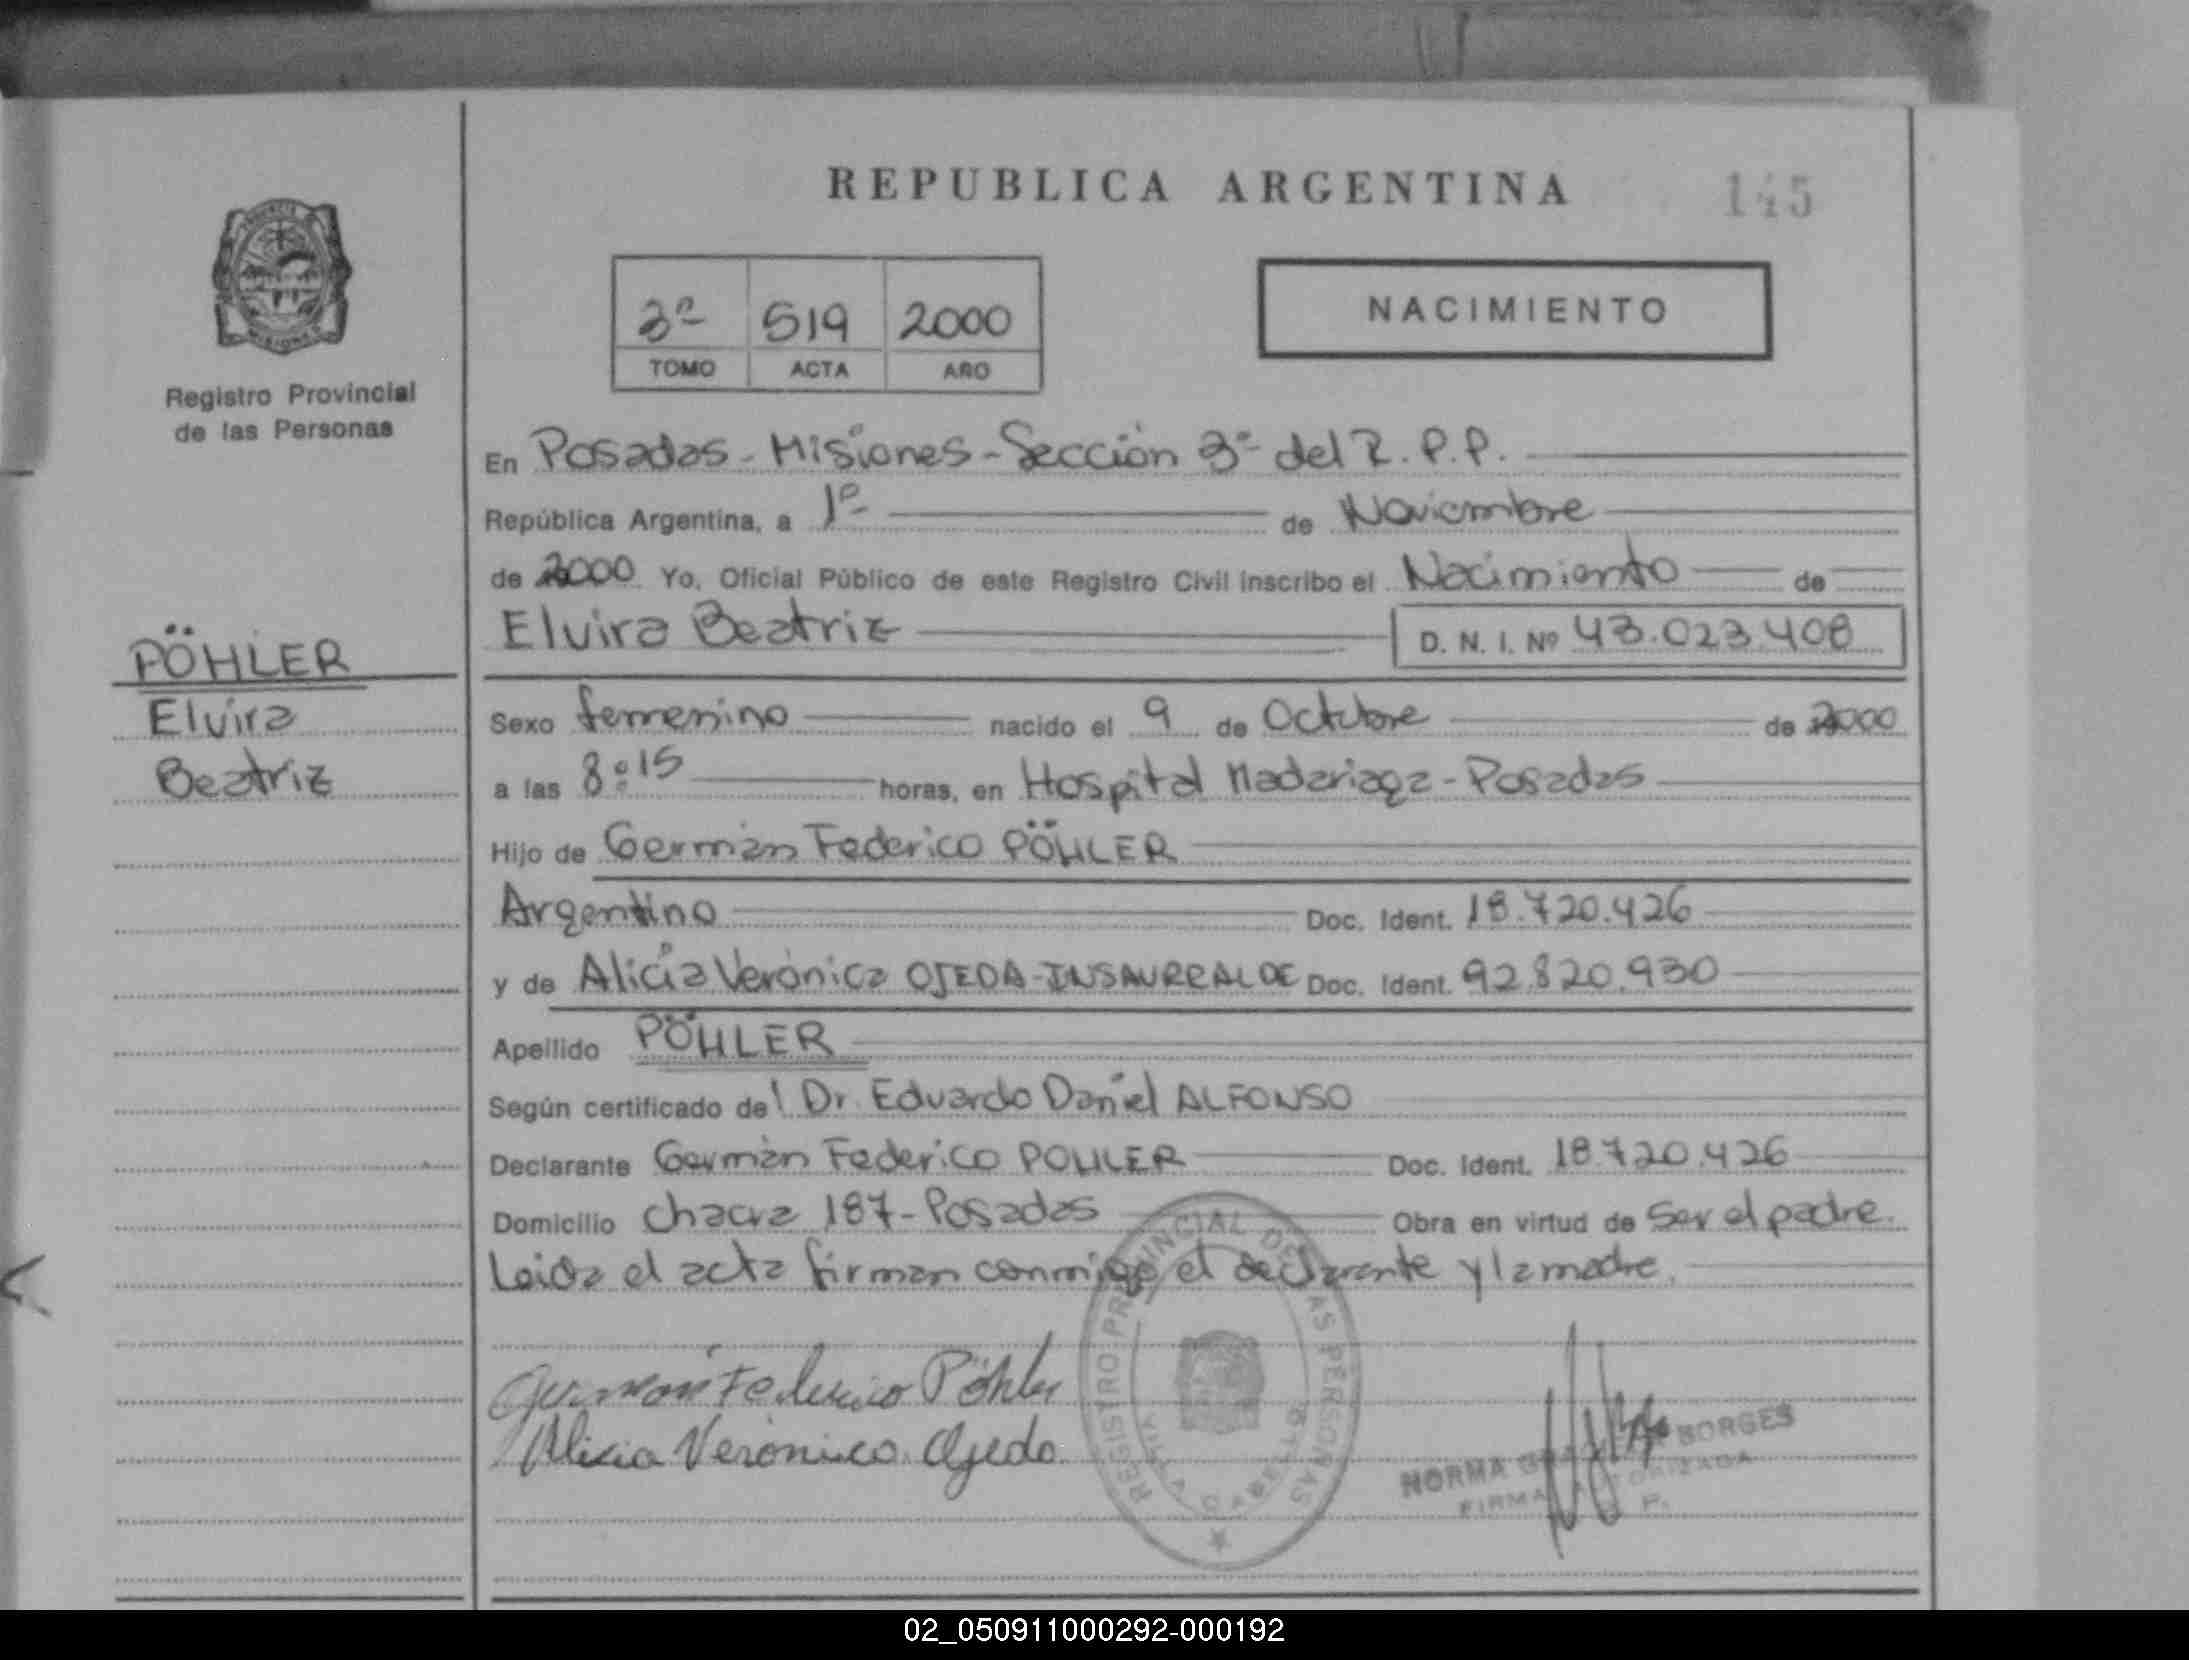 REPUBLICA ARGENTINA 145
PROVINCIA DE MISIONES
Registro Provincial
de las Personas
3º 519 2000
TOMO ACTA AÑO
NACIMIENTO
En Posadas - Misiones - Sección 3º del R.P.P.
República Argentina, a 1º de Noviembre
de 2000 Yo, Oficial Público de este Registro Civil inscribo el Nacimiento de
Elvira Beatriz D. N. I. Nº 43.023.408
PÖHLER
Elvira
Beatriz
Sexo femenino nacido el 9 de Octubre de 2000
a las 8:15 horas, en Hospital Madariaga - Posadas
Hijo de Germán Federico PÖHLER
Argentino Doc. Ident. 18.720.426
y de Alicia Verónica OJEDA-INSAURRALDE Doc. Ident. 92.820.930
Apellido PÖHLER
Según certificado del Dr. Eduardo Daniel ALFONSO
Declarante Germán Federico POHLER Doc. Ident. 18.720.426
Domicilio chacra 187 - Posadas Obra en virtud de ser el padre.
Leida el acta firman conmigo el declarante y la madre.
Germán Federico Pöhler
Alicia Verónica Ojeda
REGISTRO PROVINCIAL DE LAS PERSONAS
VILLA CABELLO
NORMA BORGES
FIRMA AUTORIZADA
02_050911000292-000192